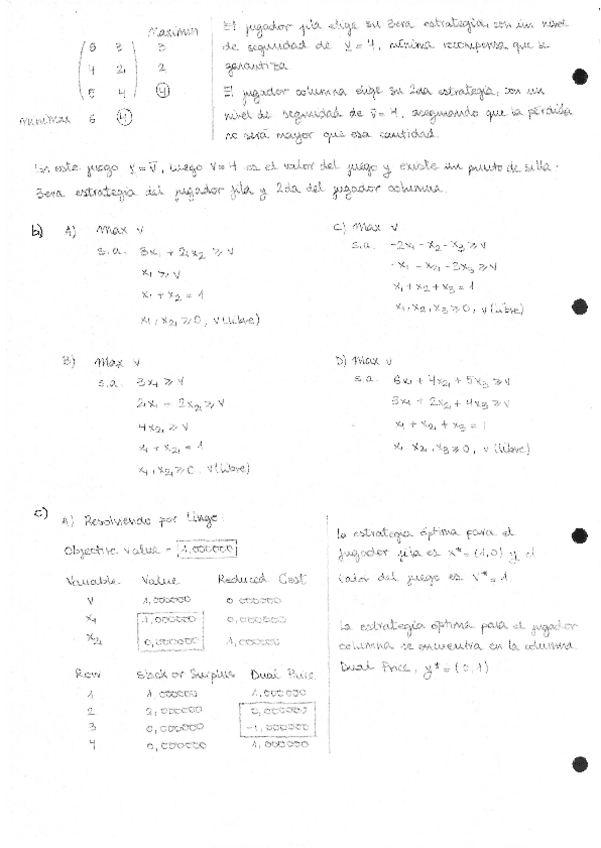 Maximin
( 6 3 ) 3
4 2 2
5 4 ④
Minimax 6 ④
El jugador fila elige su 3era estrategia, con un nivel
de seguridad de v = 4, mínima recompensa que se
garantiza
El jugador columna elige su 2da estrategia, con un
nivel de seguridad de v̄ = 4, asegurando que la pérdida
no será mayor que esa cantidad.
En este juego v = v̄, luego v = 4 es el valor del juego y existe un punto de silla.
3era estrategia del jugador fila y 2da del jugador columna.
b) A) Max v
s.a. 3x₁ + 2x₂ ≥ v
x₁ ≥ v
x₁ + x₂ = 1
x₁, x₂ ≥ 0, v (libre)
C) Max v
s.a. -2x₁ - x₂ - x₃ ≥ v
-x₁ - x₂ - 3x₃ ≥ v
x₁ + x₂ + x₃ = 1
x₁, x₂, x₃ ≥ 0, v (libre)
B) Max v
s.a. 3x₁ ≥ v
2x₁ - 2x₂ ≥ v
4x₂ ≥ v
x₁ + x₂ = 1
x₁, x₂ ≥ 0. v (libre)
D) Max v
s.a. 6x₁ + 4x₂ + 5x₃ ≥ v
3x₁ + 2x₂ + 4x₃ ≥ v
x₁ + x₂ + x₃ = 1
x₁ x₂, x₃ ≥ 0, v (libre)
c) A) Resolviendo por Lingo:
Objective value = 1,000000
Variable Value Reduced Cost
V 1,000000 0,000000
x₁ 1,000000 0,000000
x₂ 0,000000 1,000000
Row Slack or Surplus Dual Price
1 1,000000 1,000000
2 2,000000 0,000000
3 0,000000 -1,000000
4 0,000000 1,000000
La estrategia óptima para el
jugador fila es x* = (1,0) y el
valor del juego es V* = 1
La estrategia óptima para el jugador
columna se encuentra en la columna
Dual Price, y* = (0,1)